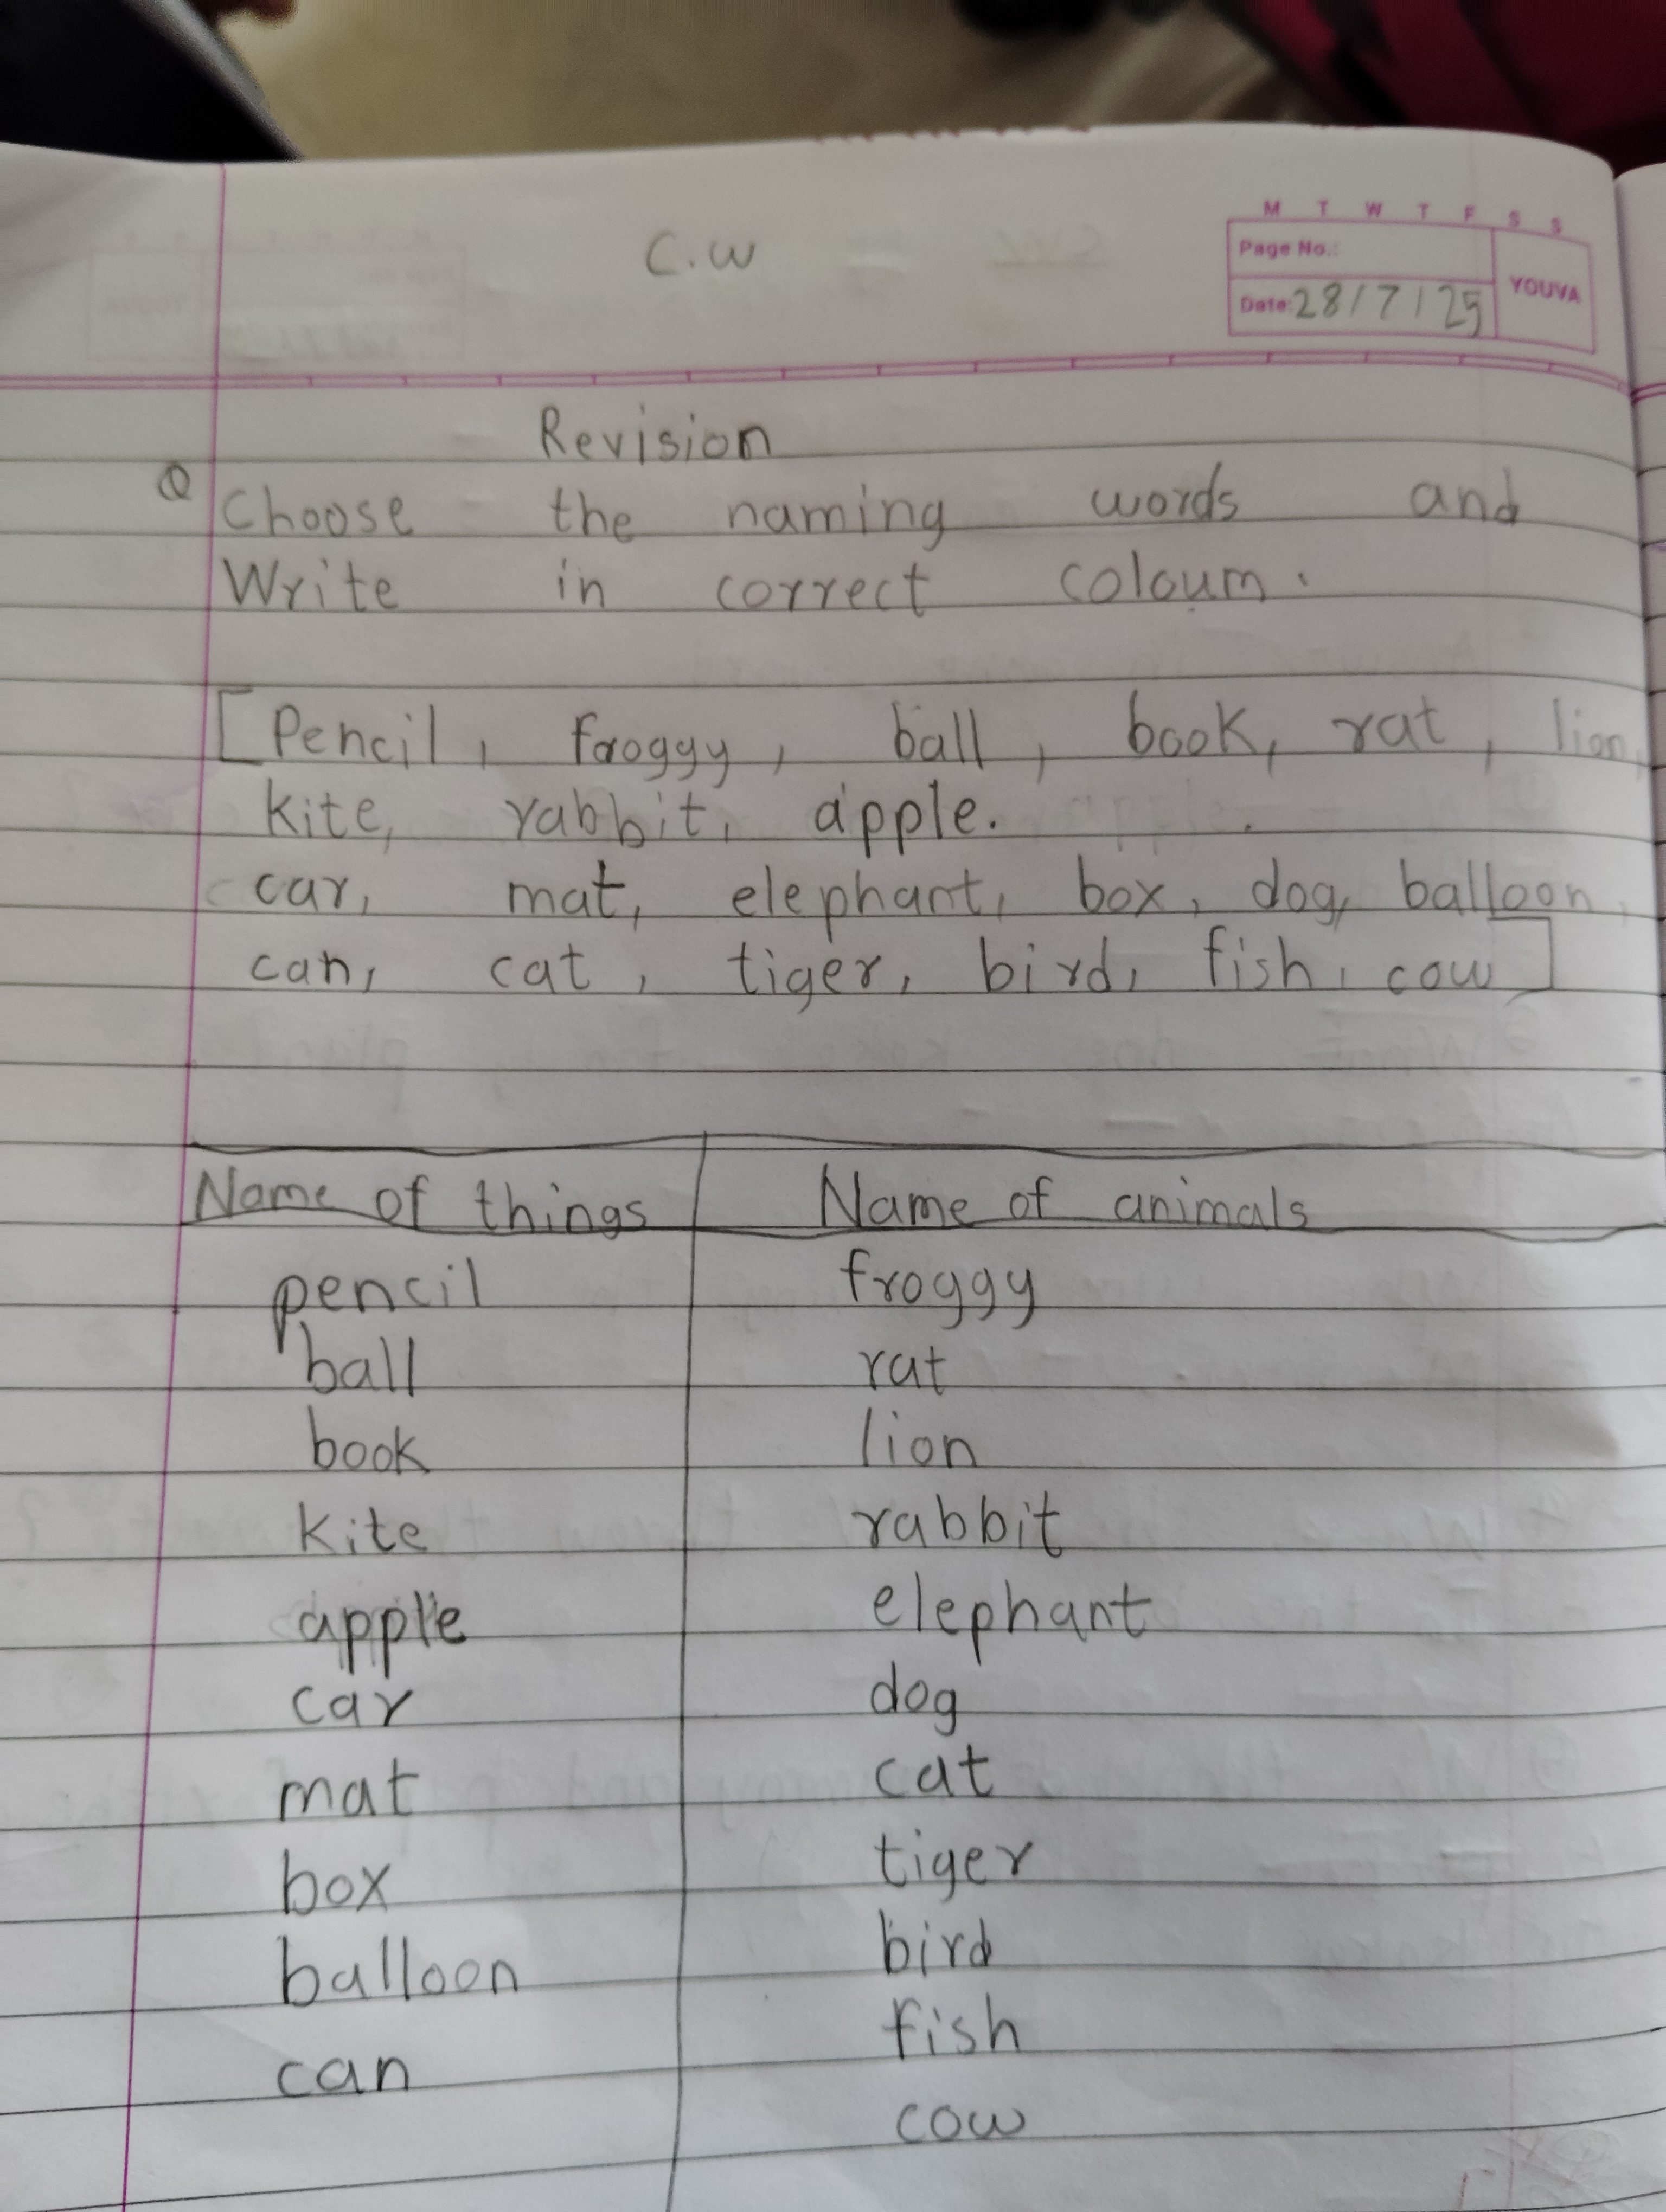 C.W
M T W T F S S
Page No.:
YOUVA
Date: 28/7/25
Revision
Q Choose the naming words and
Write in correct coloum.
[Pencil, froggy, ball, book, rat, lion,
kite, rabbit, apple.
car, mat, elephant, box, dog, balloon,
can, cat, tiger, bird, fish, cow]
Name of things Name of animals
pencil froggy
ball rat
book lion
kite rabbit
apple elephant
car dog
mat cat
box tiger
balloon bird
can fish
cow